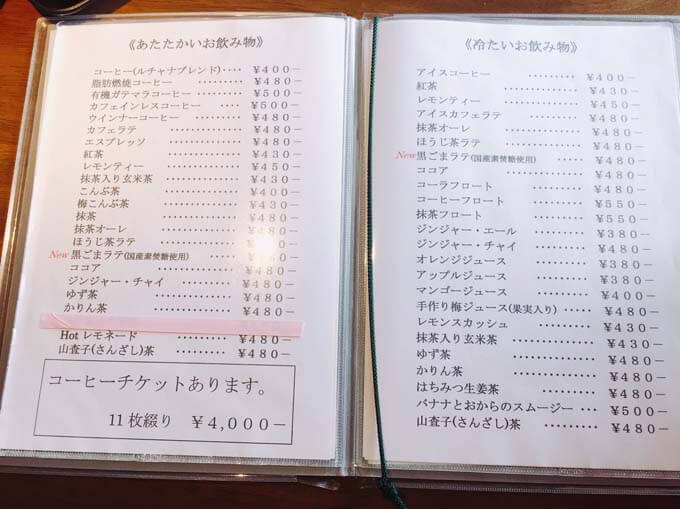 《あたたかいお飲み物》
コーヒー(ルチャナブレンド)‥‥ ￥400－
脂肪燃焼コーヒー ‥‥‥‥ ￥480－
有機ガテマラコーヒー ‥‥‥ ￥500－
カフェインレスコーヒー ‥‥ ￥500－
ウインナーコーヒー ‥‥‥‥ ￥480－
カフェラテ ‥‥‥‥‥‥ ￥480－
エスプレッソ ‥‥‥‥‥‥ ￥480－
紅茶 ‥‥‥‥‥‥ ￥430－
レモンティー ‥‥‥‥‥‥ ￥450－
抹茶入り玄米茶 ‥‥‥‥‥ ￥430－
こんぶ茶 ‥‥‥‥‥‥ ￥400－
梅こんぶ茶 ‥‥‥‥‥‥ ￥430－
抹茶 ‥‥‥‥‥‥ ￥480－
抹茶オーレ ‥‥‥‥‥‥ ￥480－
ほうじ茶ラテ ‥‥‥‥‥
New 黒ごまラテ(国産素焚糖使用) ￥480－
ココア ‥‥‥‥‥‥ ￥480－
ジンジャー・チャイ ‥‥‥‥ ￥480－
ゆず茶 ‥‥‥‥‥‥ ￥480－
かりん茶 ‥‥‥‥‥‥ ￥480－
Hot レモネード ‥‥‥‥‥ ￥480－
山査子(さんざし)茶 ‥‥‥‥ ￥480－
コーヒーチケットあります。
11枚綴り ￥4,000－
《冷たいお飲み物》
アイスコーヒー ‥‥‥‥‥ ￥400－
紅茶 ‥‥‥‥‥‥ ￥430－
レモンティー ‥‥‥‥‥‥ ￥450－
アイスカフェラテ ‥‥‥‥‥ ￥480－
抹茶オーレ ‥‥‥‥‥‥ ￥480－
ほうじ茶ラテ ‥‥‥‥‥‥ ￥480－
New 黒ごまラテ(国産素焚糖使用) ‥‥ ￥480－
ココア ‥‥‥‥‥‥ ￥480－
コーラフロート ‥‥‥‥‥ ￥480－
コーヒーフロート ‥‥‥‥‥ ￥550－
抹茶フロート ‥‥‥‥‥‥ ￥550－
ジンジャー・エール ‥‥‥‥ ￥380－
ジンジャー・チャイ ‥‥‥‥ ￥480－
オレンジジュース ‥‥‥‥‥ ￥380－
アップルジュース ‥‥‥‥‥ ￥380－
マンゴージュース ‥‥‥‥‥ ￥400－
手作り梅ジュース(果実入り)‥‥ ￥480－
レモンスカッシュ ‥‥‥‥‥ ￥480－
抹茶入り玄米茶 ‥‥‥‥‥ ￥430－
ゆず茶 ‥‥‥‥‥‥ ￥480－
かりん茶 ‥‥‥‥‥‥ ￥480－
はちみつ生姜茶 ‥‥‥‥‥ ￥480－
バナナとおからのスムージー ‥‥ ￥500－
山査子(さんざし)茶 ‥‥‥‥‥ ￥480－